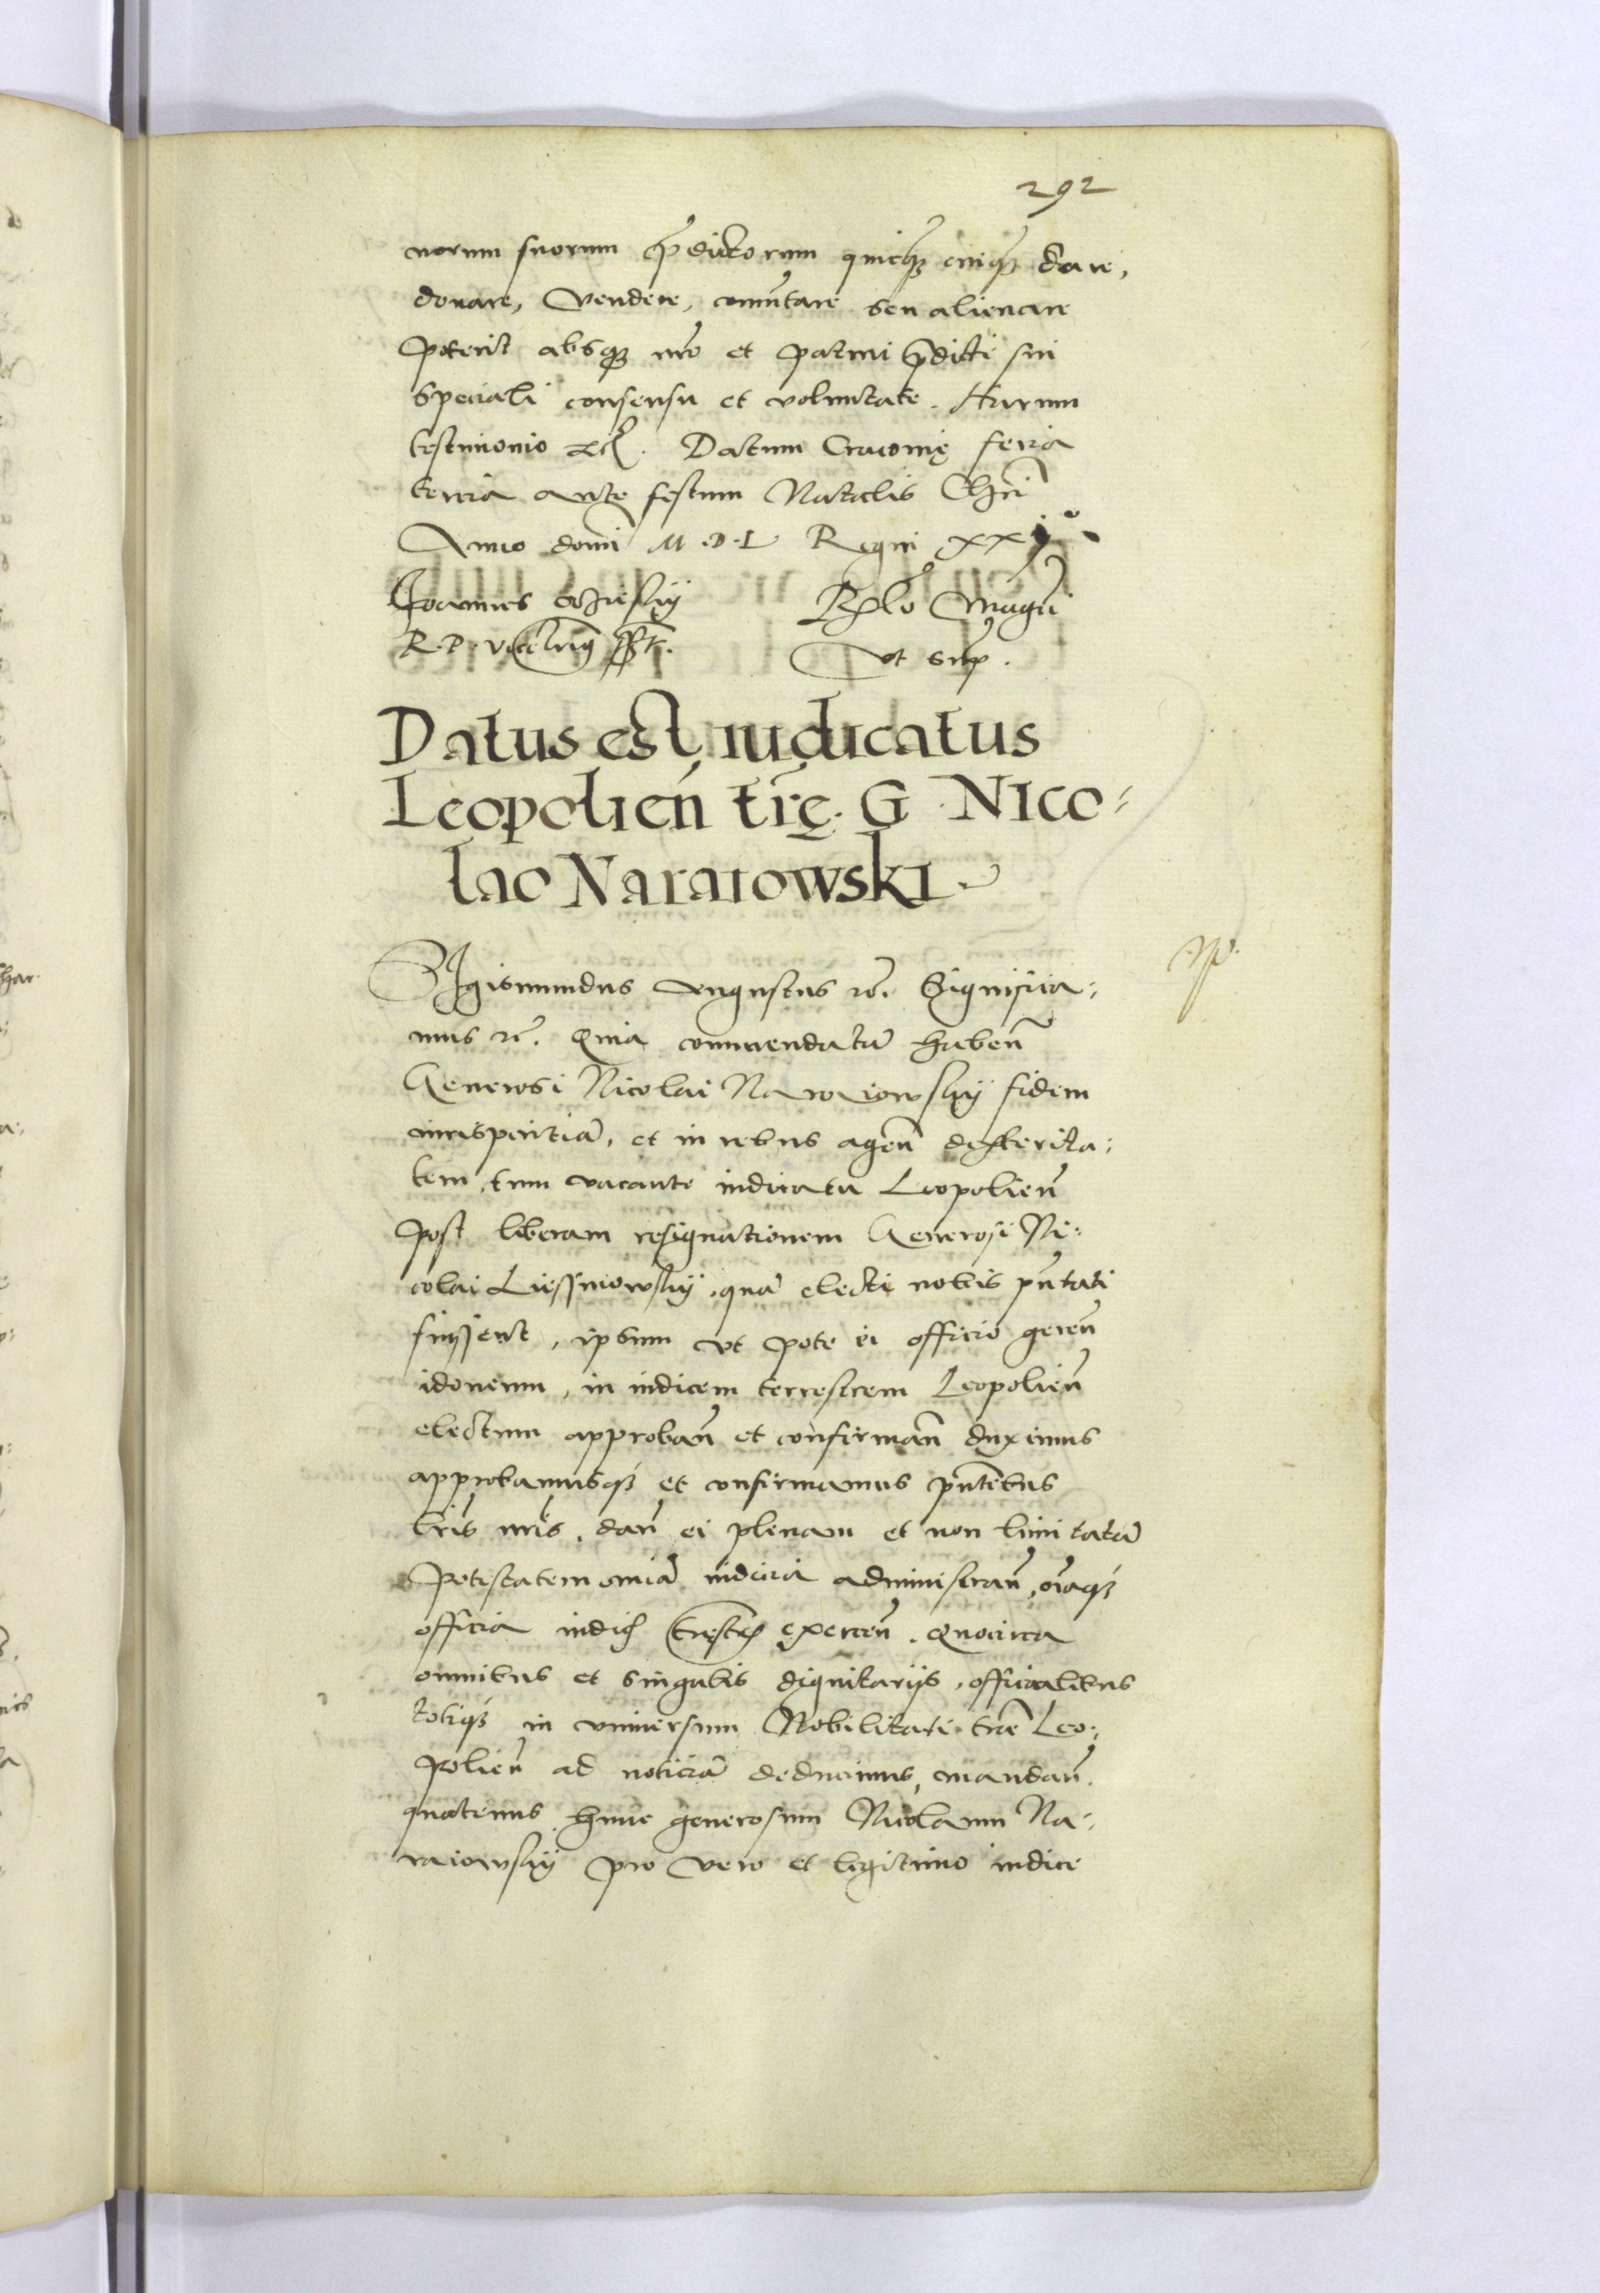 292
norum suorum p̄dictorum quicq̨ cuiq̨ dare,
donare, vendere, comūtare seu alienare
poterit absq̨ nr̄o et patrui p̄dicti sui
speciali consensu et voluntate. Harum
testimonio &c. Datum Cracovię feria
tercia ante festum Natalis Chr̄i
Anno domī M.D.L Regni XXIº
Joannes Oczieskÿ
R.P. Vicecācellariꝯ sst.
Rēlo Magcī
vt sup̄.
Datus est iudicatus
Leopolień tr̄ę. G Nico=
lao Naraiowski
Sigismundus Augustus &c. Significa=
mus &c. Quia commendatā habeń
Generosi Nicolai Naraiowskÿ fidem
iurisperitiā, et in rebus ageń dexterita=
tem, tum vacante iudicatu Leopolień
post liberam resignationem Generosi Ni=
colai Liessniowskÿ, quā electi nobis pn̄tati
fuissent, ipsum vt pote ei officio gereń
idoneum, in iudicem terrestrem Leopolień
electum approbań et confirmań duximus
approbamusq̨ et confirmamus pn̄tibus
lr̄is nr̄is, dań ei plenam et non limitatā
potestatem omīa iudicia administrań, oīaq̨
officia iudicis tr̄estris exerceń. Quocirca
omnibus et singulis dignitarijs, officialibus
totiq̨ in vniversum Nobilitati tr̄e Leo=
polień ad noticiā deducimus, mandań
quatenus hunc generosum Nicolaum Na=
raiowskÿ pro vero et legitimo iudice